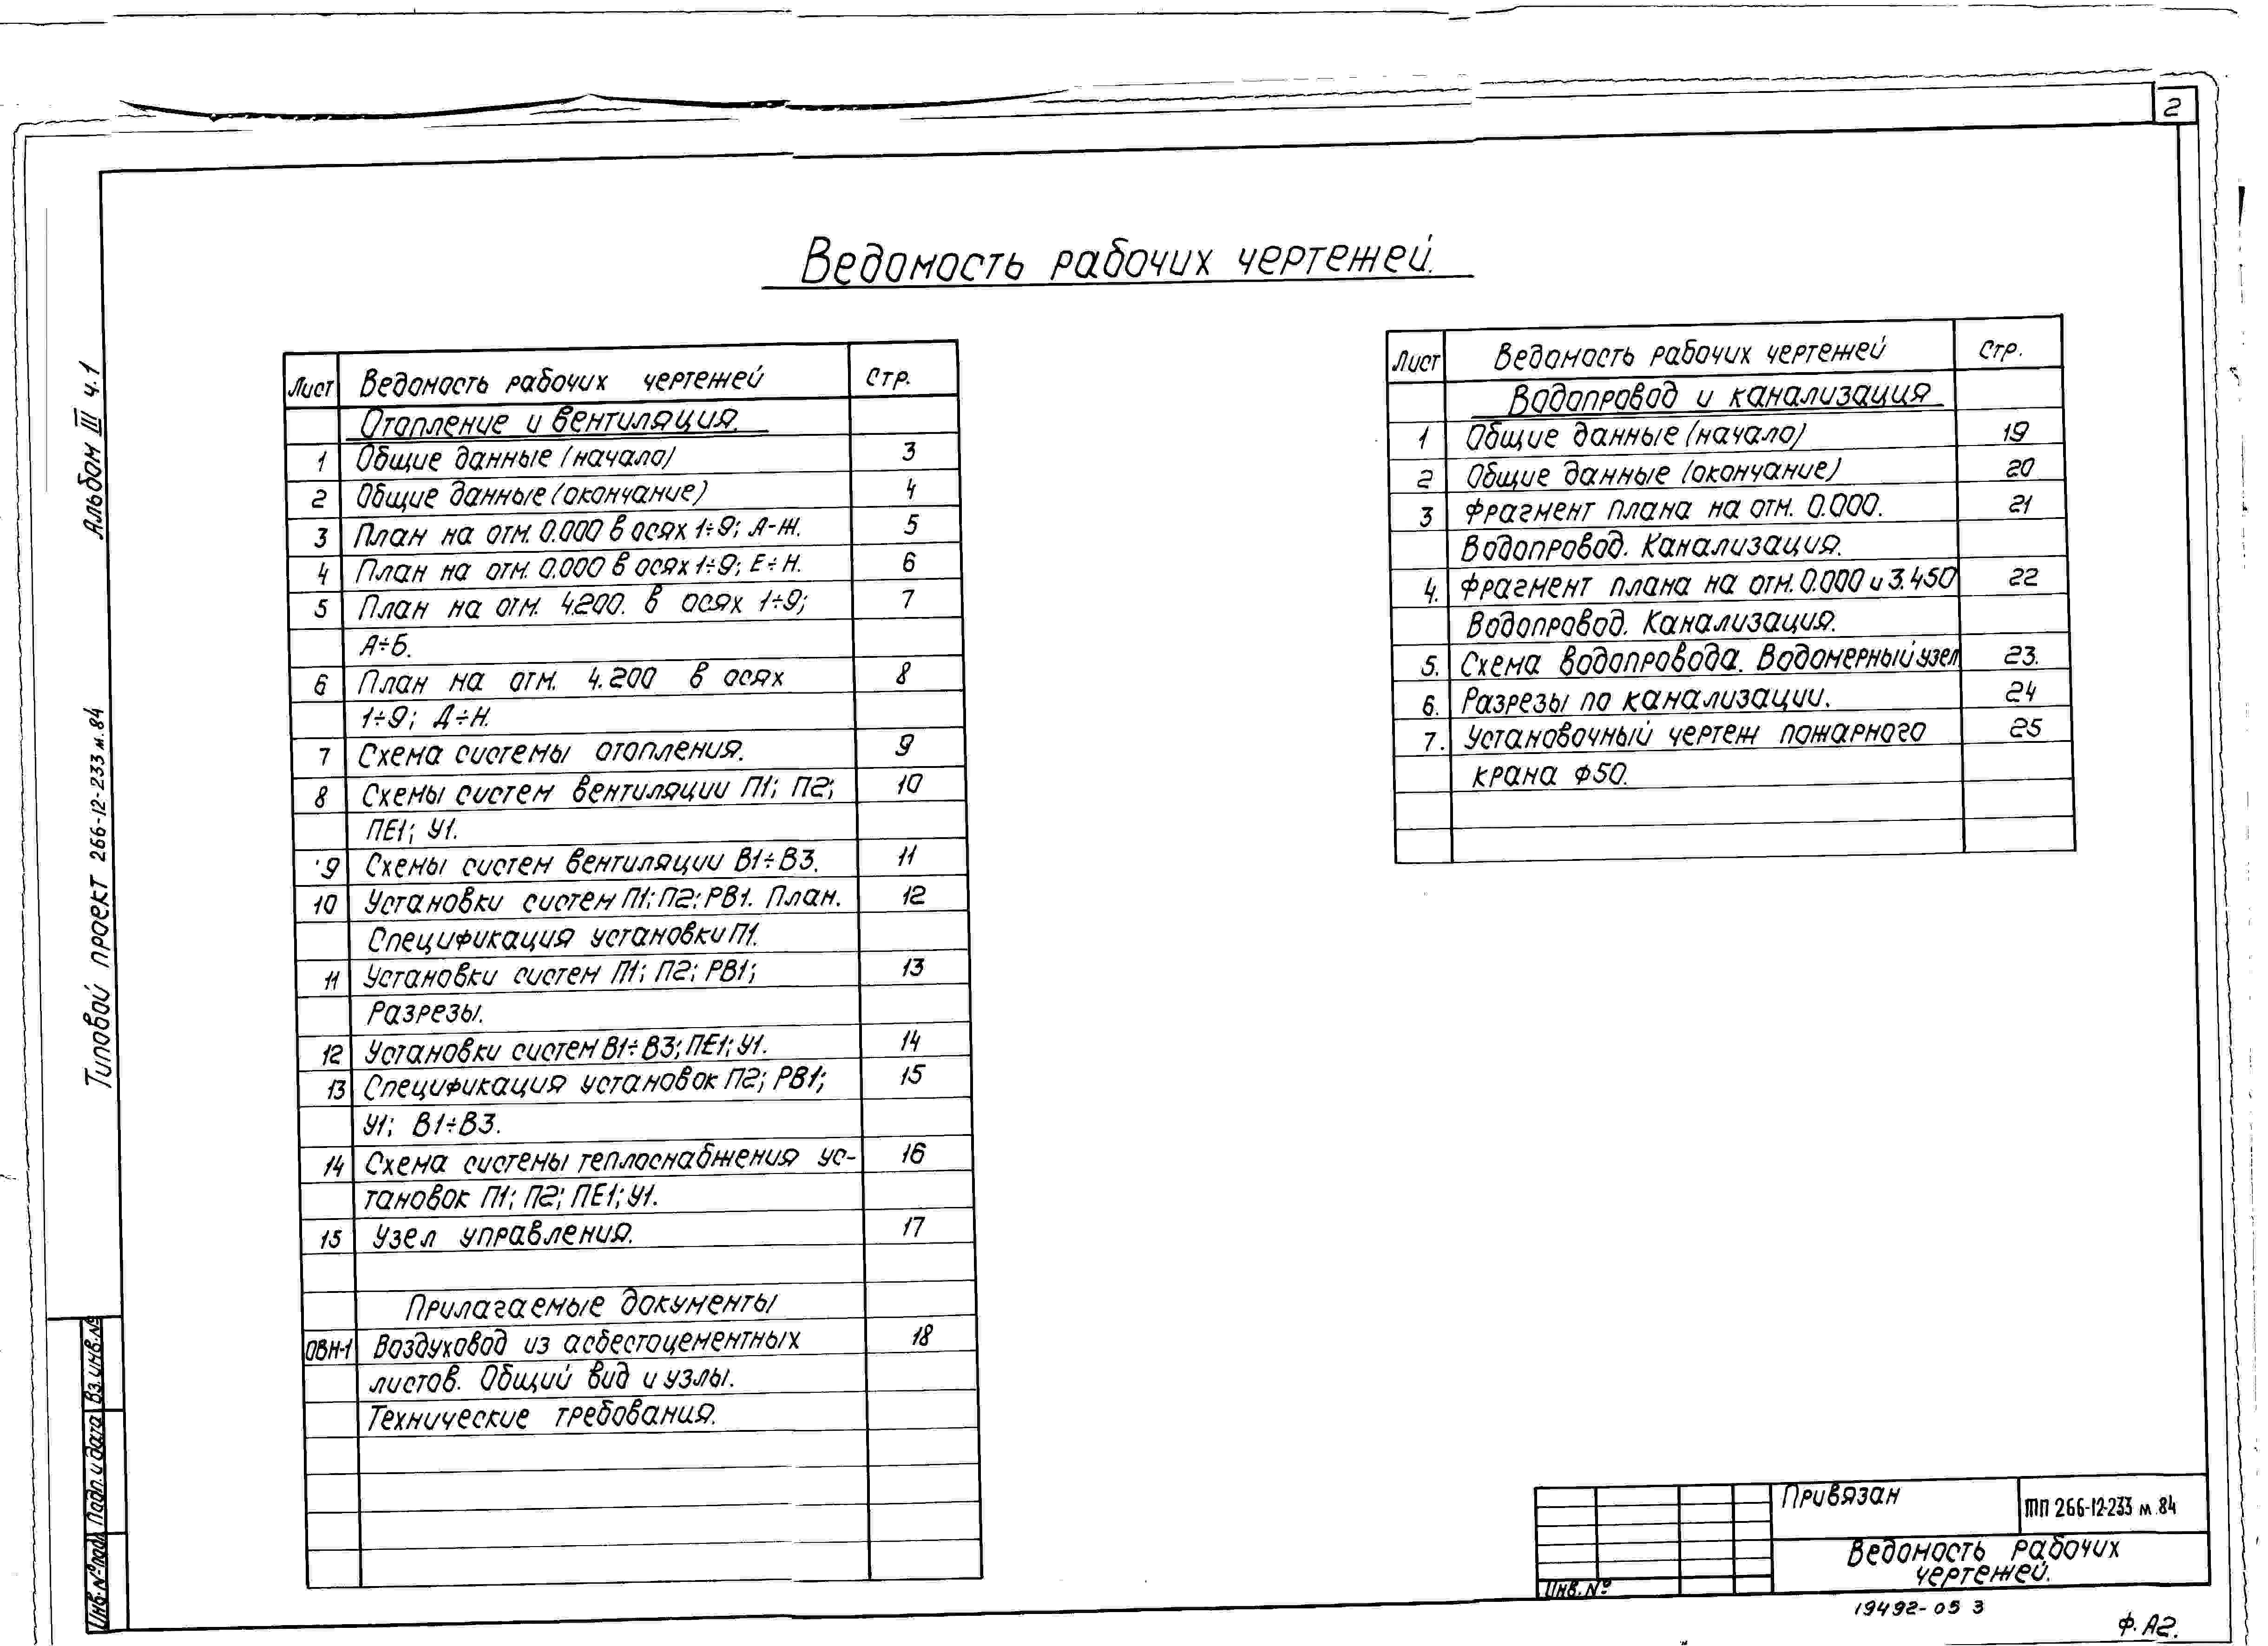 2
Ведомость рабочих чертежей.
Альбом III ч.1
Типовой проект 266-12-233 м.84
Лист Ведомость рабочих чертежей Стр.
Отопление и вентиляция.
1 Общие данные (начало) 3
2 Общие данные (окончание) 4
3 План на отм. 0.000 в осях 1÷9; А-Ж. 5
4 План на отм. 0.000 в осях 1÷9; Е÷Н. 6
5 План на отм. 4.200. в осях 1÷9; 7
А÷Б.
6 План на отм. 4.200 в осях 8
1÷9; Д÷Н.
7 Схема системы отопления. 9
8 Схемы систем вентиляции П1; П2; 10
ПЕ1; У1.
9 Схемы систем вентиляции В1÷В3. 11
10 Установки систем П1; П2; РВ1. План. 12
Спецификация установки П1.
11 Установки систем П1; П2; РВ1; 13
Разрезы.
12 Установки систем В1÷В3; ПЕ1; У1. 14
13 Спецификация установок П2; РВ1; 15
У1; В1÷В3.
14 Схема системы теплоснабжения ус- 16
тановок П1; П2; ПЕ1; У1.
15 Узел управления. 17
Прилагаемые документы
ОВН-1 Воздуховод из асбестоцементных 18
листов. Общий вид и узлы.
Технические требования.
Лист Ведомость рабочих чертежей Стр.
Водопровод и канализация
1 Общие данные (начало) 19
2 Общие данные (окончание) 20
3 Фрагмент плана на отм. 0.000. 21
Водопровод. Канализация.
4. Фрагмент плана на отм. 0.000 и 3.450 22
Водопровод. Канализация.
5. Схема водопровода. Водомерный узел 23.
6. Разрезы по канализации. 24
7. Установочный чертеж пожарного 25
крана ф50.
Инв.№подл. Подп. и дата Вз. инв.№
Привязан
ТП 266-12-233 м.84
Ведомость рабочих
чертежей.
Инв. №
19492-05 3
Ф. А2.